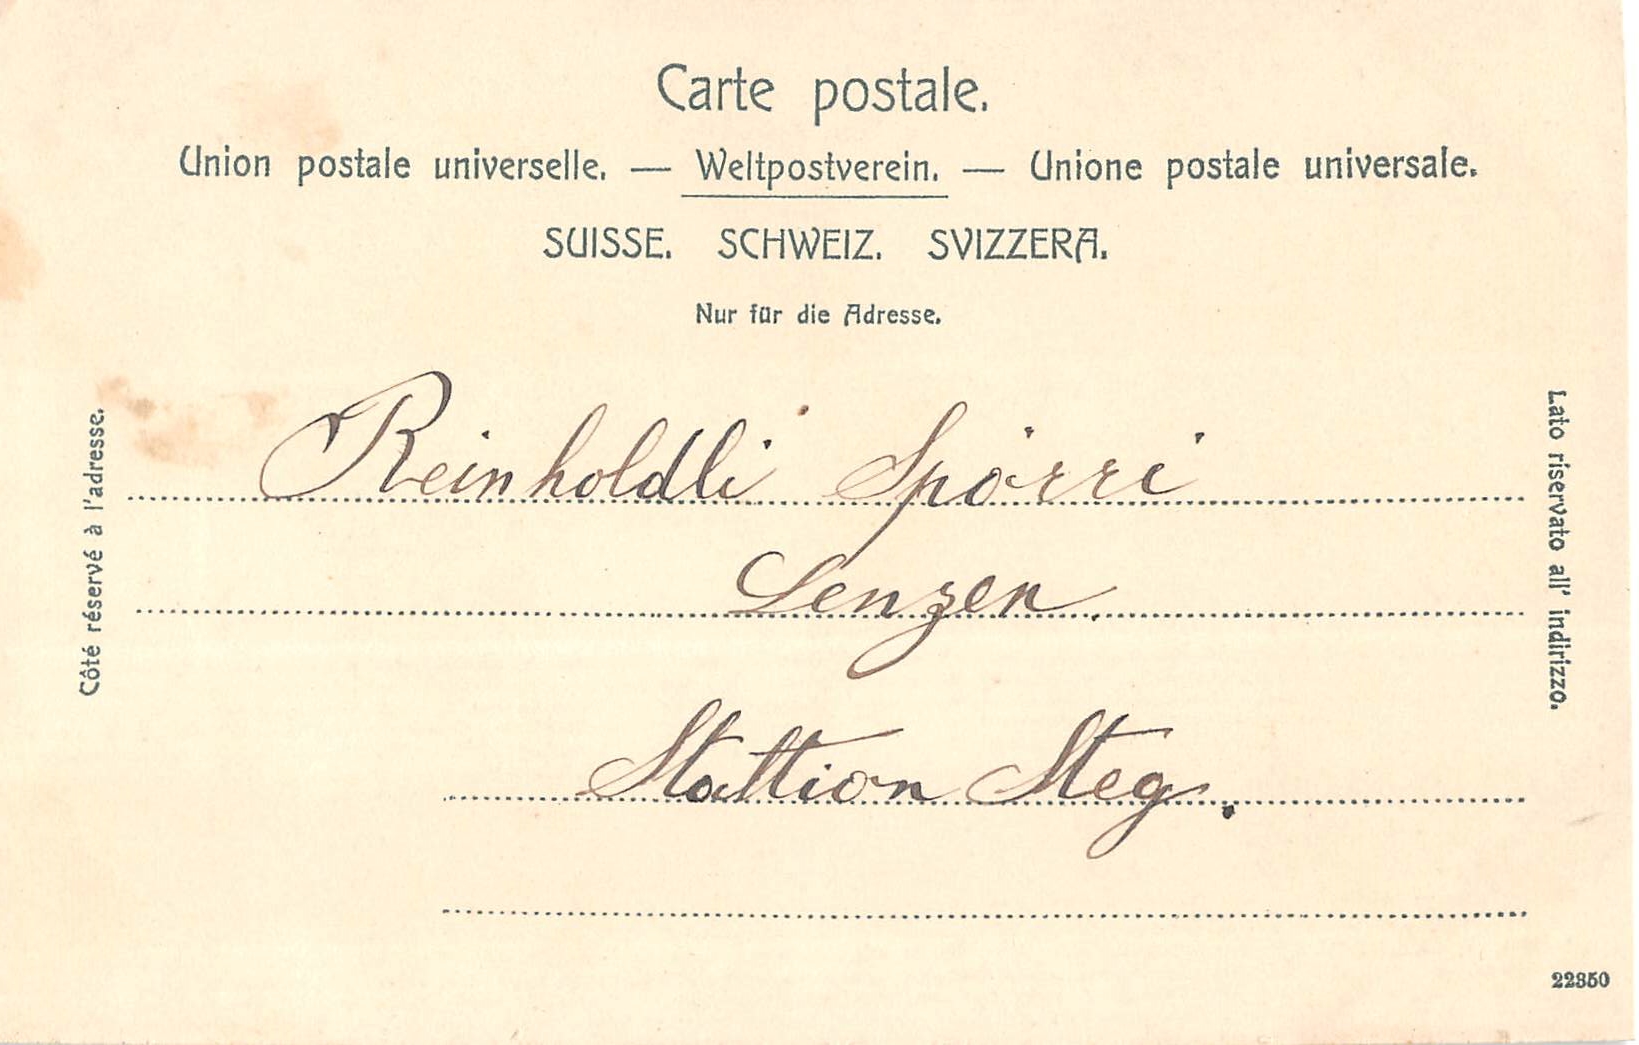 Carte postale.
Union postale universelle. — Weltpostverein. — Unione postale universale.
SUISSE. SCHWEIZ. SVIZZERA.
Nur für die Adresse.
Côté réservé à l'adresse.
Reinholdli Spörri
Lenzen.
Stattion Steg.
Lato riservato all' indirizzo.
22350